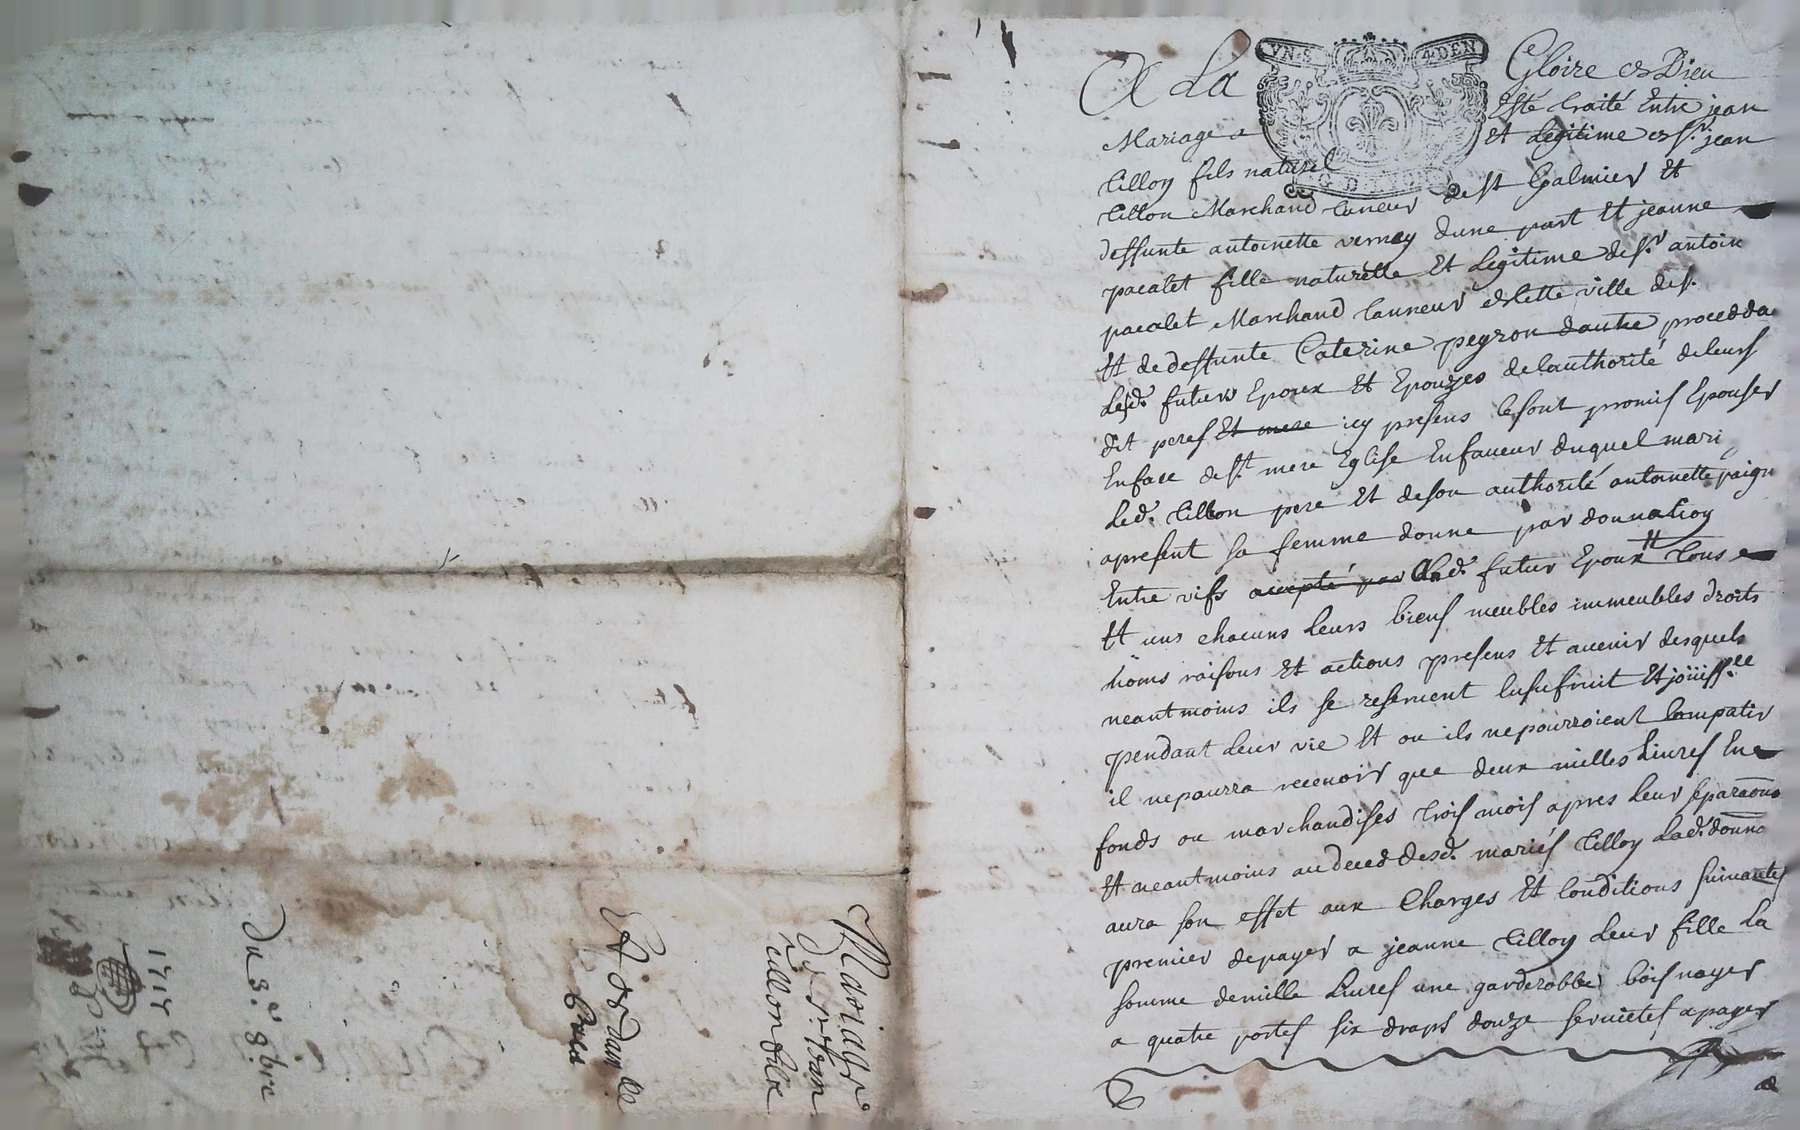 Mariage
du Sr Jean
tillon filie
Et de dam lle
Du 3e 8bre
1715
VN·S 4·DEN
A La Gloire de Dieu
Mariage a Esté traité Entre jean
tilloy fils naturel Et Legitime de Sr. jean
tillon Marchand tanneur de St Galmier Et
deffunte antoinette verney dune part Et jeanne
pacalet fille naturelle Et Legitime de Sr antoine
pacalet Marchand tanneur de Cette ville de St.
Et de deffunte Caterine peyron dautre procedda
Lesd. futurs Epoux Et Epouzes de lauthorité de leurs
dit peres Et mere icy presens se sont promis Epouser
En face de Ste mere Eglise En faveur duquel mari
Led. tillon pere Et de son authorité antoinette
apresent sa femme donne par donnation
Entre vifs accepté par and. futur Epoux tous
Et uns chacuns leurs biens meubles immeubles droits
noms raisons Et actions presens Et avenir desquels
neantmoins ils se reservent lusufruit Et joüiss.ce
pendant Leur vie Et ou ils ne pourroient Compatir
il ne pourra recevoir que deux milles Livres En
fonds ou marchandises trois mois apres leur separaõns
Et neantmoins au deced desd. mariés tilloy Lad. donnõ
aura son effet aux Charges Et Conditions suivantes
premier de payer a jeanne tilloy Leur fille La
somme de mille Livres une garderobbe bois noyer
a quatre portes six draps douze serviettes a payer